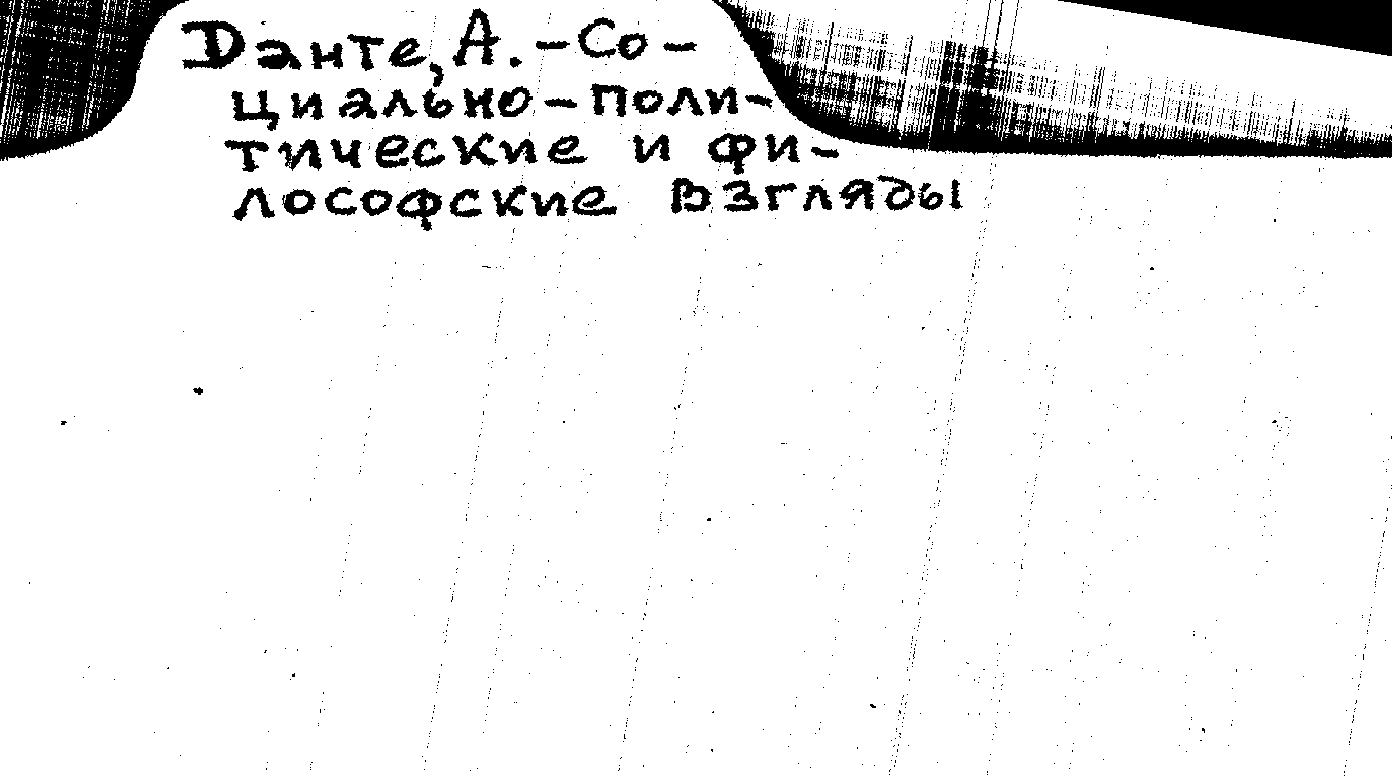 Данте, А. - Со-
циально-поли-
тические и фи-
лософские взгляды